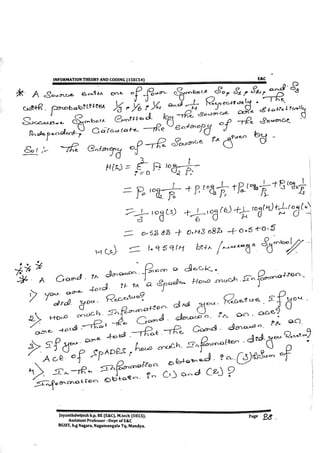 INFORMATION THEORY AND CODING (15EC54) E&C
* A Source emits one of four Symbols S0, S1, S2, and S3
with probabilities 1/3, 1/6, 1/4 and 1/4 Respectively. The
Successive Symbols Emitted by the Source are Statistically
Independent. Calculate the entropy of the Source
Sol :- The Entropy of the Source is given by -
H(S) = 3 Σ i=0 Pi log 1/Pi
= P0 log 1/P0 + P1 log 1/P1 + P2 log 1/P2 + P3 log 1/P3
= 1/3 log(3) + 1/6 log(6) + 1/4 log(4) + 1/4 log(4)
= 0.5283 + 0.43082 + 0.5 + 0.5
H(S) = 1.95914 bits / message Symbol //
* A Card is drawn from a deck.
1) you are told it is a Spade. How much Information
did you Receive?
2) How much Information did you Receive If you
are told that the Card drawn is an ace?
3) If you are told that the Card drawn is an
Ace of SPADES, how much Information did you Receive?
4) Is the Information obtained in (3) Sum of
Information obtain in (1) and (2)?
Jayanthdwijesh h.p. BE (E&C), M.tech (DECS).
Assistant Professor -Dept of E&C
BGSIT, b.g Nagara, Nagamangala Tq, Mandya.
Page 28